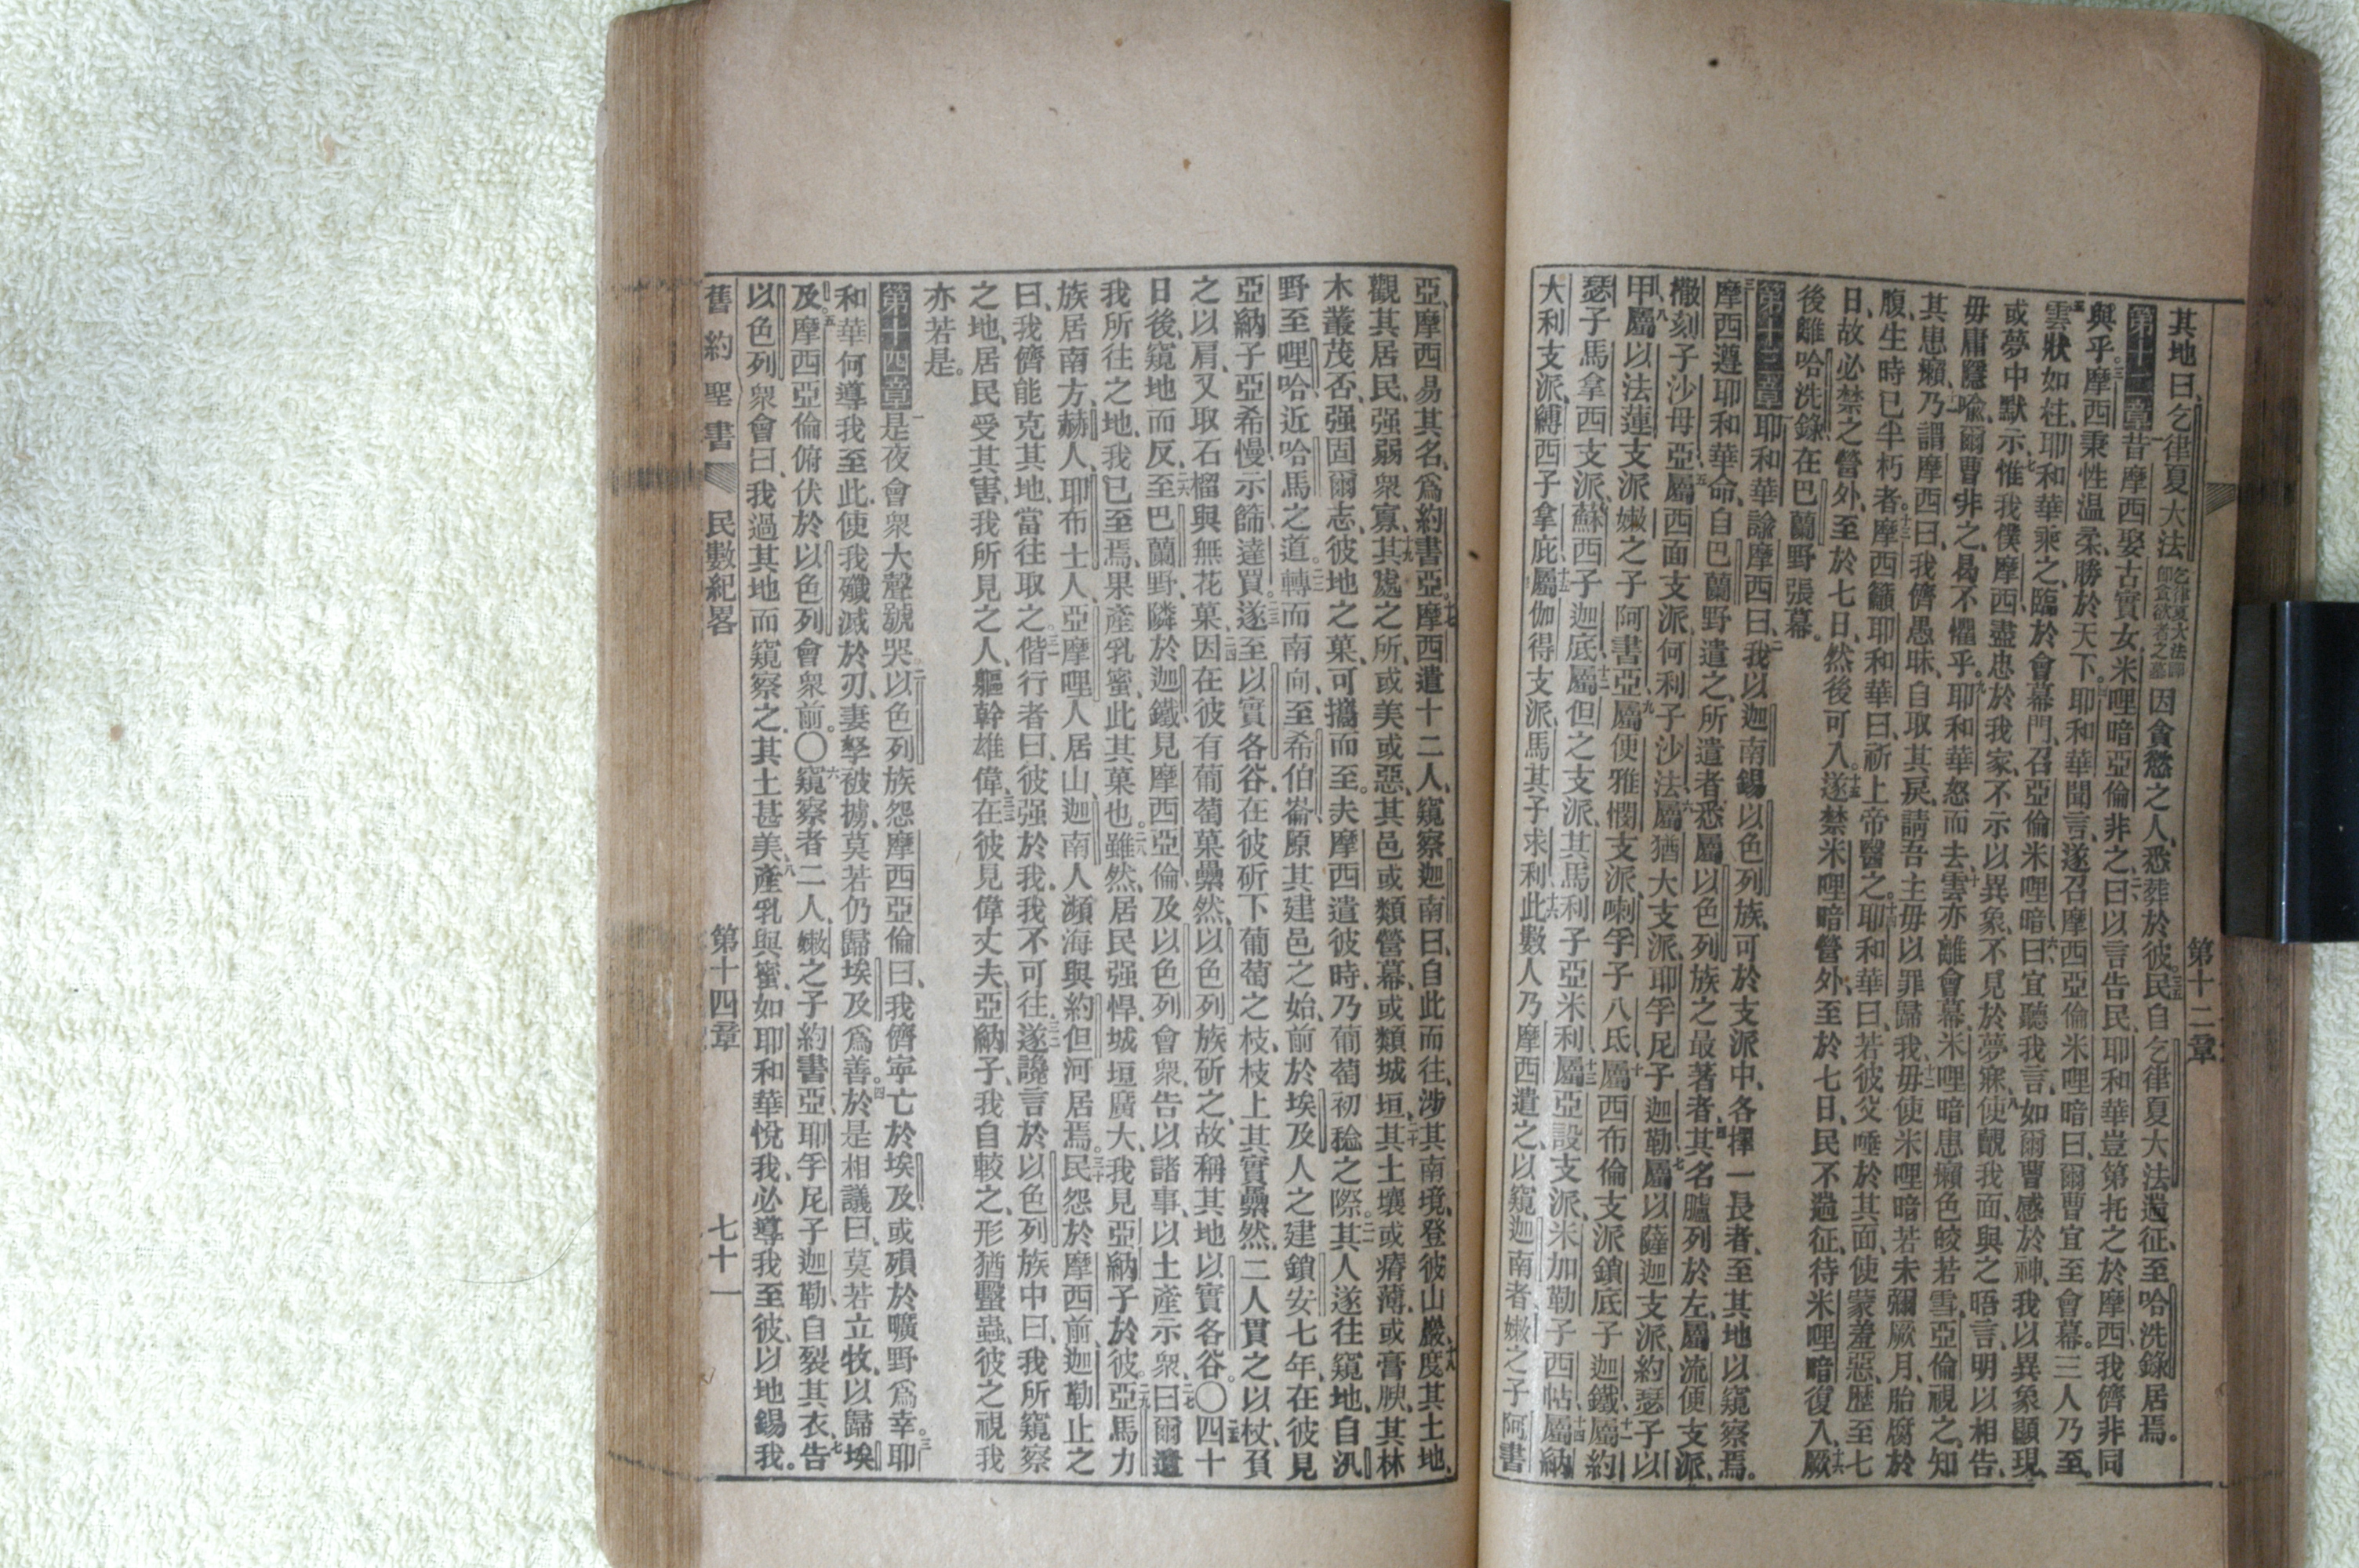 其地曰、乞律夏大法、乞律夏大法卽
卽貪慾者之墓
因貪慾之人、悉葬於彼。三五民自乞律夏大法遄征、至哈洗錄居焉。
第十二章一昔摩西娶古實女、米哩暗亞倫非之、二曰以言告民、耶和華豈第託之於摩西、我儕非同
與乎。三摩西秉性温柔、勝於天下。四耶和華聞言、遂召摩西亞倫米哩暗曰、爾曹宜至會幕。三人乃至。
五雲狀如柱、耶和華乘之、臨於會幕門、召亞倫米哩暗、六曰、宜聽我言、如爾曹感於神、我以異象顯現、
或夢中默示、七惟我僕摩西、盡忠於我家、不示以異象、不見於夢寐、八使覿我面、與之晤言、明以相告、
毋庸隱喻、爾曹非之、曷不懼乎。九耶和華怒而去、十雲亦離會幕、米哩暗患癩、色皎若雪、亞倫視之、知
其患癩、十一乃謂摩西曰、我儕愚昧、自取其戾、請吾主毋以罪歸我、十二毋使米哩暗若未彌厥月、胎腐於
腹、生時已半朽者。十三摩西籲耶和華曰、祈上帝醫之。十四耶和華曰、若彼父唾於其面、使蒙羞惡、歷至七
日、故必禁之營外、至於七日、然後可入。十五遂禁米哩暗營外、至於七日、民不遄征、待米哩暗復入、十六厥
後離哈洗錄、在巴蘭野張幕。
第十三章一耶和華諭摩西曰、二我以迦南錫以色列族、可於支派中、各擇一長者、至其地以窺察焉。
三摩西遵耶和華命、自巴蘭野遣之、所遣者悉屬以色列族之最著者、四其名臚列於左、屬流便支派、
撒刻子沙母亞、五屬西面支派、何利子沙法、六屬猶大支派、耶孚尼子迦勒、七屬以薩迦支派、約瑟子以
甲、八屬以法蓮支派、嫩之子阿書亞、九屬便雅憫支派、喇孚子八氐、十屬西布倫支派、鎖底子迦鐵、十一屬約
瑟子馬拿西支派、蘇西子迦底、十二屬但之支派、其馬利子亞米利、十三屬亞設支派、米加勒子西帖、十四屬納
大利支派、縛西子拿庇、十五屬伽得支派、馬其子求利、十六此數人乃摩西遣之、以窺迦南者、嫩之子阿書
亞、摩西易其名、爲約書亞。十七摩西遣十二人、窺察迦南曰、自此而往、涉其南境、登彼山巖、十八度其土地、
觀其居民、强弱衆寡、十九其處之所、或美或惡、其邑或類營幕、或類城垣、二十其土壤或瘠薄、或膏腴、其林
木叢茂否、强固爾志、彼地之菓、可攜而至。夫摩西遣彼時、乃葡萄初稔之際。二一其人遂往窺地、自汛
野至哩哈、近哈馬之道、二二轉而南向、至希伯崙、原其建邑之始、前於埃及人之建鎖安七年、在彼見
亞納子亞希慢、示篩、達買。二三遂至以實各谷、在彼斫下葡萄之枝、枝上其實纍然、二人貫之以杖、負
之以肩、又取石榴與無花菓、二四因在彼有葡萄菓纍然、以色列族斫之、故稱其地以實各谷。〇二五四十
日後、窺地而反、二六至巴蘭野、隣於迦鐵、見摩西亞倫、及以色列會衆、告以諸事、以土產示衆、二七曰、爾遣
我所往之地、我已至焉、果產乳蜜、此其菓也。二八雖然、居民强悍、城垣廣大、我見亞納子於彼。二九亞馬力
族居南方、赫人、耶布士人、亞摩哩人居山、迦南人瀕海與約但河居焉。三十民怨於摩西前、迦勒止之
曰、我儕能克其地、當往取之。三一偕行者曰、彼强於我、我不可往、三二遂讒言於以色列族中曰、我所窺察
之地、居民受其害、我所見之人、軀幹雄偉、三三在彼見偉丈夫、亞納子、我自較之、形猶蟁蟲、彼之視我
亦若是。
第十四章一是夜會衆大聲號哭、二以色列族怨摩西亞倫曰、我儕寧亡於埃及、或殞於曠野爲幸。三耶
和華何導我至此、使我殲滅於刃、妻孥被擄、莫若仍歸埃及爲善。四於是相議曰、莫若立牧、以歸埃
及。五摩西亞倫俯伏於以色列會衆前。〇六窺察者二人、嫩之子約書亞、耶孚尼子迦勒、自裂其衣、七告
以色列衆會曰、我過其地而窺察之、其土甚美、八產乳與蜜、如耶和華悅我、必導我至彼、以地錫我。
舊約聖書 民數紀畧 第十四章 七十一
第十二章